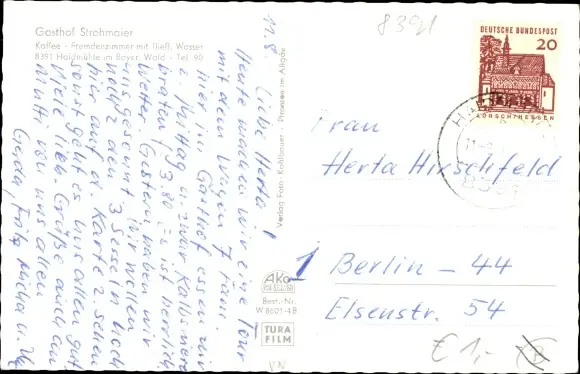 Gasthof Strohmaier
Kaffee - Fremdenzimmer mit fließ. Wasser
8391 Haidmühle im Bayer. Wald - Tel. 90
11.8. Liebe Herta!
Heute machen wir eine Tour
mit dem Wagen 7 Pers.
hier im Gasthof essen wir
z. Mittag u. zwar Kalbsniere
braten, 3.80 es ist herrlich
Wetter. Gestern haben wir
uns gesonnt. Wir wollen
nach d. 3 Sesseln hoch
hier auf d. Karte z. sehen
sonst geht es uns allen gut.
Viele lieb. Grüße auch an
Mutti von uns allen
Gerda, Fritz, Micha u.
Verlag Foto - Kohlbauer - Pfronten im Allgäu
Ako
Best.-Nr.
W 8601-4 B
TURA
FILM
8391
DEUTSCHE BUNDESPOST
20
LORSCH/HESSEN
8391
Frau
Herta Hirschfeld
1 Berlin - 44
Elsenstr. 54
€ 1,-